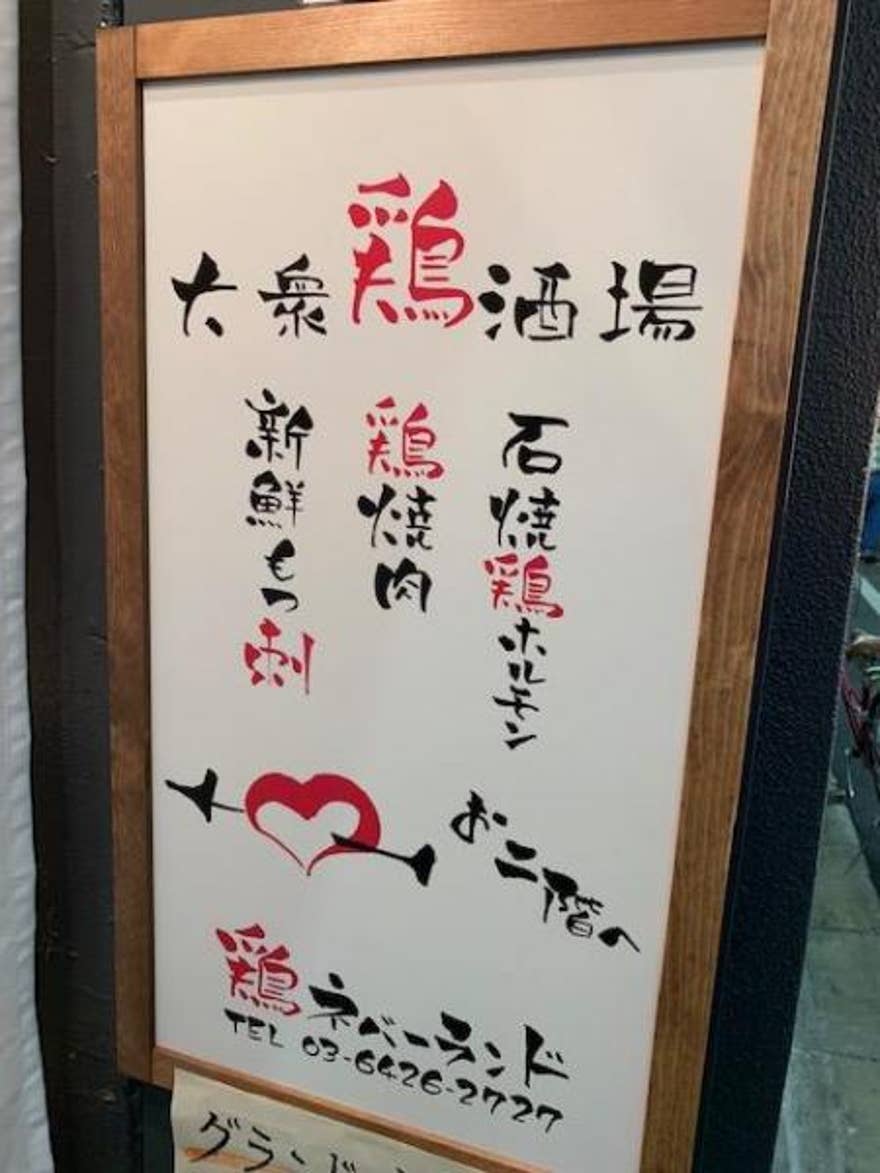 大衆鶏酒場
石焼鶏ホルモン
鶏焼肉
新鮮もつ刺
お二階へ
鶏ネバーランド
TEL 03-6426-2727